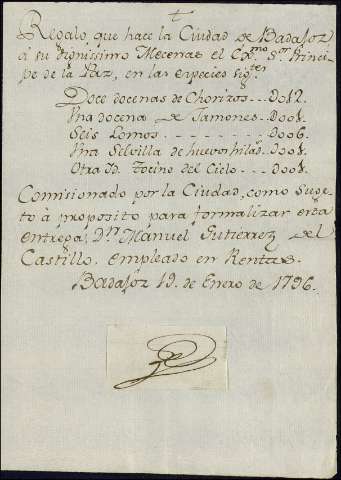 Regalo que hace la Ciudad de Badajoz
á su dignissimo Mecenas el Exmo. Sor. Princi-
pe de la Paz, en las especies sigtes
Doce docenas de Chorizos---Do12.
Una docena de Jamones.-Doo1.
Seis Lomos---------Doo6.
Una Selvilla de huevos hilados.-Doo1.
Otra Yd. tocino del Cielo--Doo1.
Comisionado por la Ciudad, como suge-
to á proposito para formalizar esta
entrega, Dn. Manuel Gutierrez del
Castillo. empleado en Rentas.
Badajoz 19. de Enero de 1796.